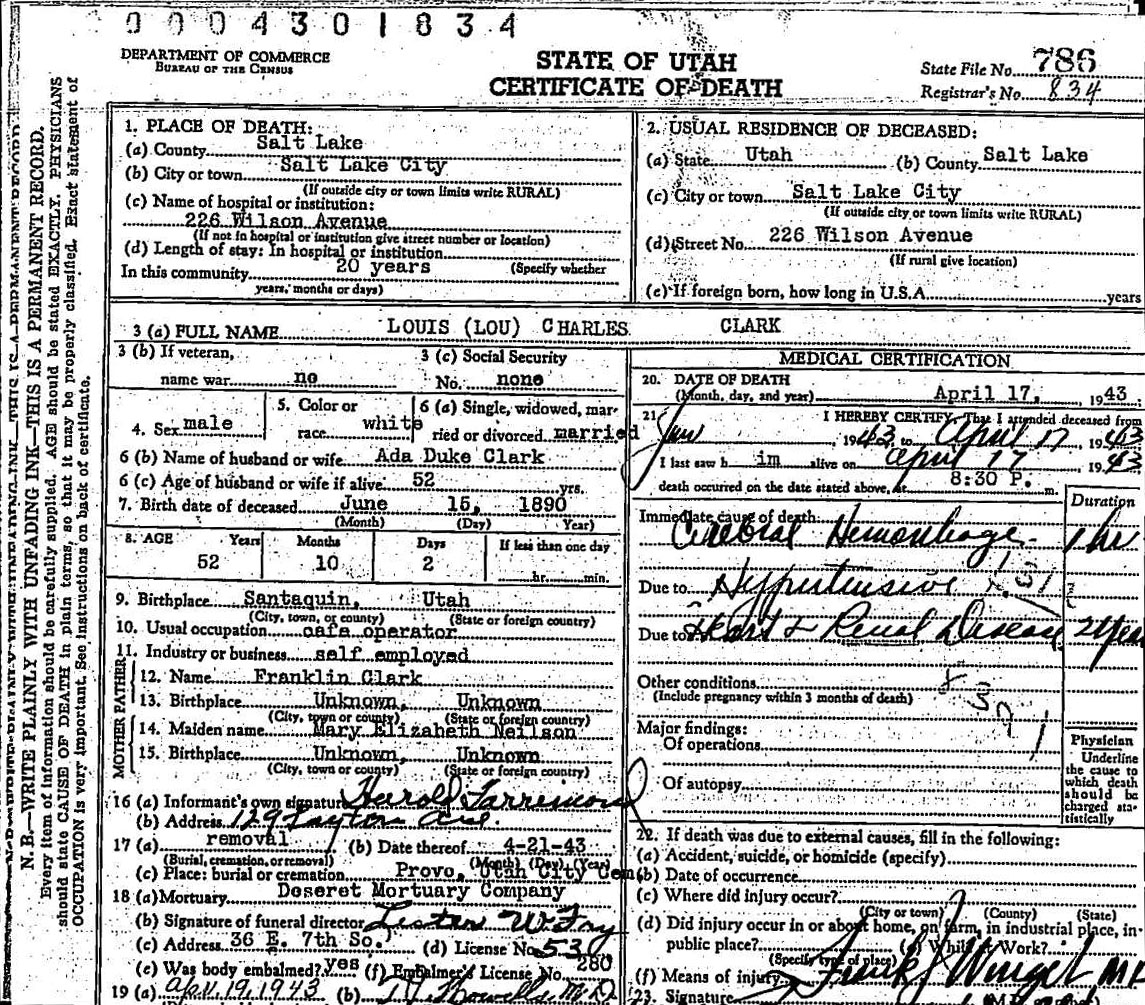 0004301834
DEPARTMENT OF COMMERCE
BUREAU OF THE CENSUS
STATE OF UTAH
CERTIFICATE OF DEATH
State File No. 786
Registrar's No. 834
N. B.—WRITE PLAINLY WITH UNFADING INK—THIS IS A PERMANENT RECORD.
Every item of information should be carefully supplied. AGE should be stated EXACTLY. PHYSICIANS
should state CAUSE OF DEATH in plain terms, so that it may be properly classified. Exact statement of
OCCUPATION is very important. See instructions on back of certificate.
1. PLACE OF DEATH:
(a) County Salt Lake
(b) City or town Salt Lake City
(If outside city or town limits write RURAL)
(c) Name of hospital or institution:
226 Wilson Avenue
(If not in hospital or institution give street number or location)
(d) Length of stay: In hospital or institution
In this community 20 years (Specify whether
years, months or days)
2. USUAL RESIDENCE OF DECEASED:
(a) State Utah (b) County Salt Lake
(c) City or town Salt Lake City
(If outside city or town limits write RURAL)
(d) Street No. 226 Wilson Avenue
(If rural give location)
(e) If foreign born, how long in U.S.A. years
3 (a) FULL NAME LOUIS (LOU) CHARLES CLARK
3 (b) If veteran,
name war no
3 (c) Social Security
No. none
4. Sex male
5. Color or
race white
6 (a) Single, widowed, mar-
ried or divorced married
6 (b) Name of husband or wife Ada Duke Clark
6 (c) Age of husband or wife if alive 52 yrs.
7. Birth date of deceased June 15, 1890
(Month) (Day) Year)
8. AGE Years Months Days If less than one day
52 10 2
hr. min.
9. Birthplace Santaquin, Utah
(City, town, or county) (State or foreign country)
10. Usual occupation cafe operator
11. Industry or business self employed
FATHER
12. Name Franklin Clark
13. Birthplace Unknown, Unknown
(City, town or county) (State or foreign country)
MOTHER
14. Maiden name Mary Elizabeth Neilson
15. Birthplace Unknown, Unknown
(City, town or county) (State or foreign country)
16 (a) Informant's own signature Harold Tarrimond
(b) Address 129 Layton Ave.
17 (a) removal (b) Date thereof 4-21-43
(Burial, cremation, or removal) (Month) (Day) (Year)
(c) Place: burial or cremation Provo, Utah City Cem
18 (a) Mortuary Deseret Mortuary Company
(b) Signature of funeral director
(c) Address 36 E. 7th So. (d) License No. 53
(e) Was body embalmed? yes (f) Embalmer's License No. 280
19 (a) April 19, 1943 (b)
MEDICAL CERTIFICATION
20. DATE OF DEATH
(Month, day, and year) April 17, 1943
21. I HEREBY CERTIFY, That I attended deceased from
Jan 1943, to April 17, 1943
I last saw him alive on April 17, 1943
death occurred on the date stated above, at 8:30 P. m.
Duration
Immediate cause of death
Cerebral Hemorrhage 1 hr
Due to Hypertensive
Due to Heart & Renal Disease 2 yea
Other conditions
(Include pregnancy within 3 months of death)
Major findings:
Of operations
Of autopsy
Physician
Underline
the cause to
which death
should be
charged sta-
tistically
22. If death was due to external causes, fill in the following:
(a) Accident, suicide, or homicide (specify)
(b) Date of occurrence
(c) Where did injury occur?
(City or town) (County) (State)
(d) Did injury occur in or about home, on farm, in industrial place, in-
public place? While Work?
(Specify type of place)
(f) Means of injury
23. Signature Frank J Winget M